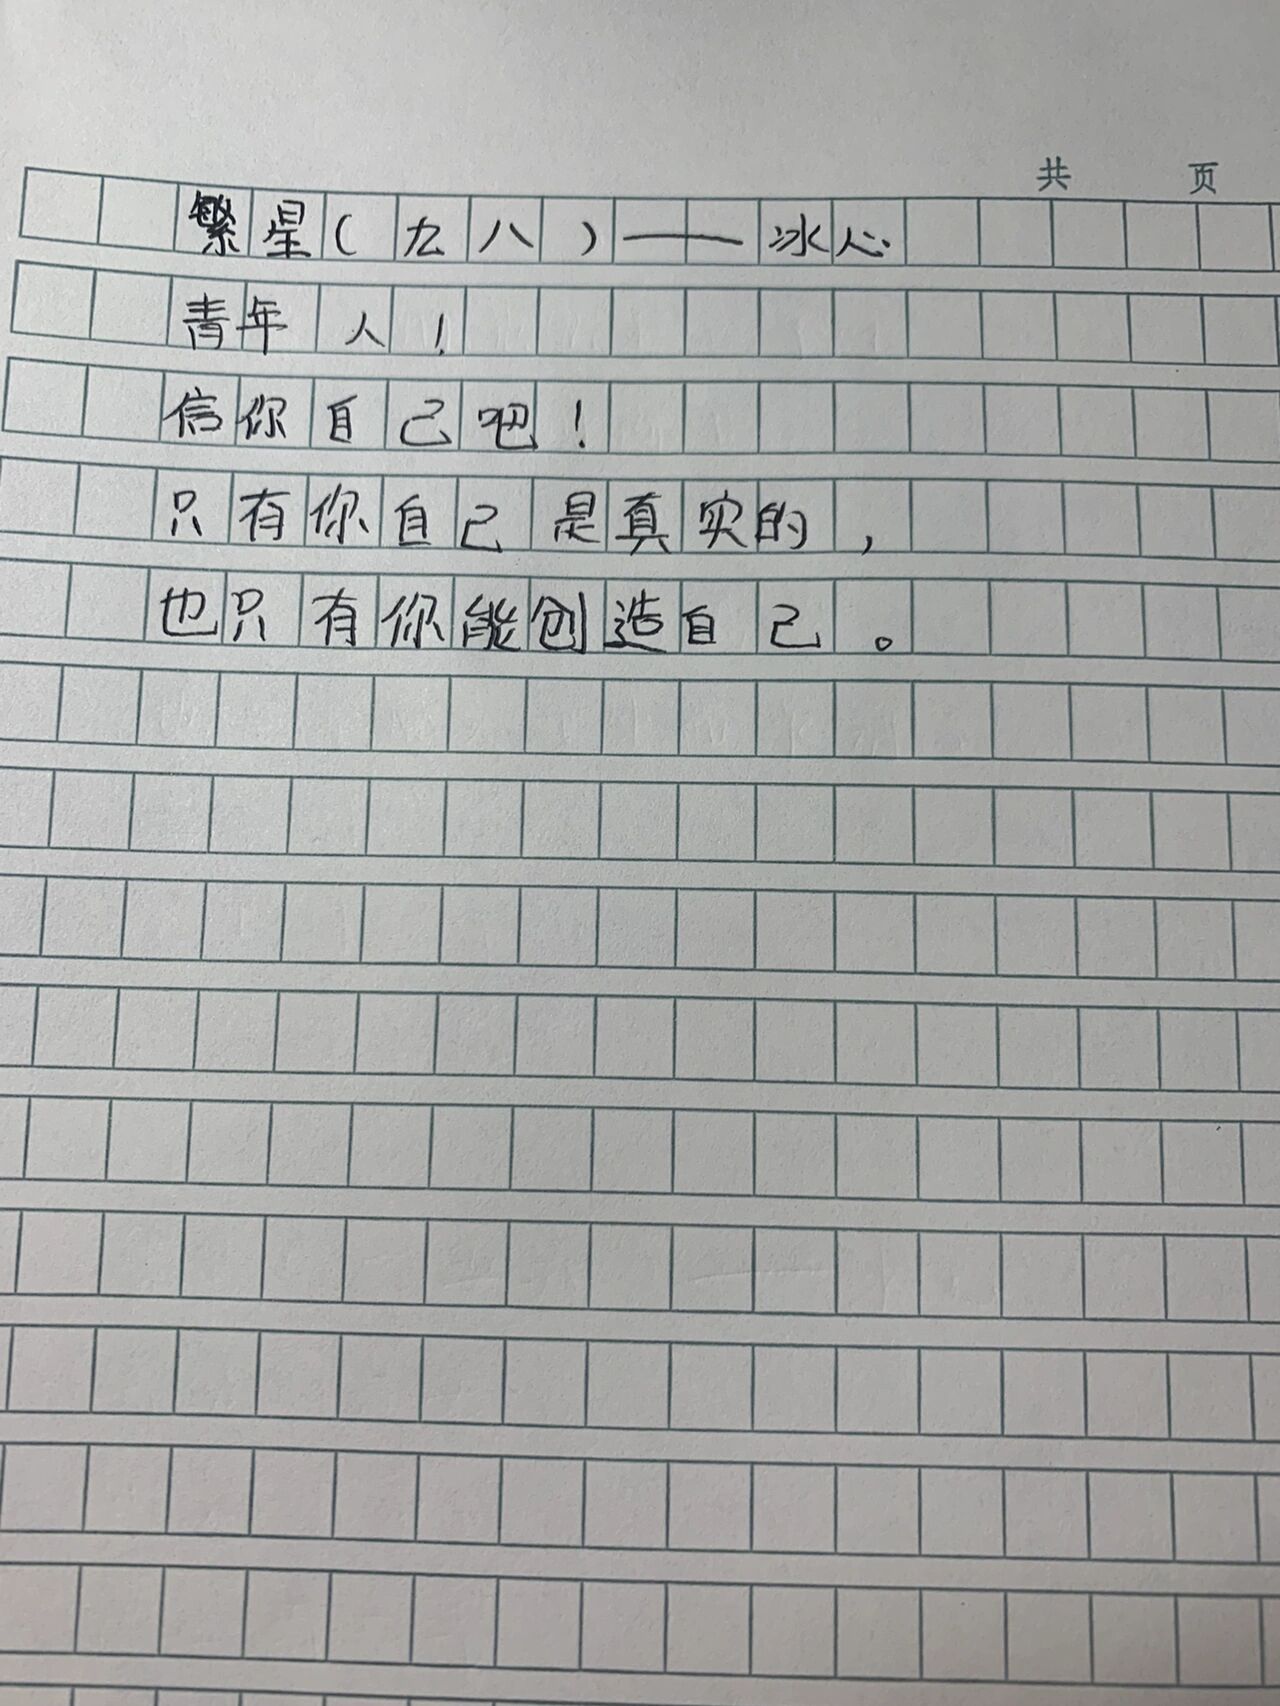 共 页
繁星(九八)——冰心
青年人!
信你自己吧!
只有你自己是真实的,
也只有你能创造自己。